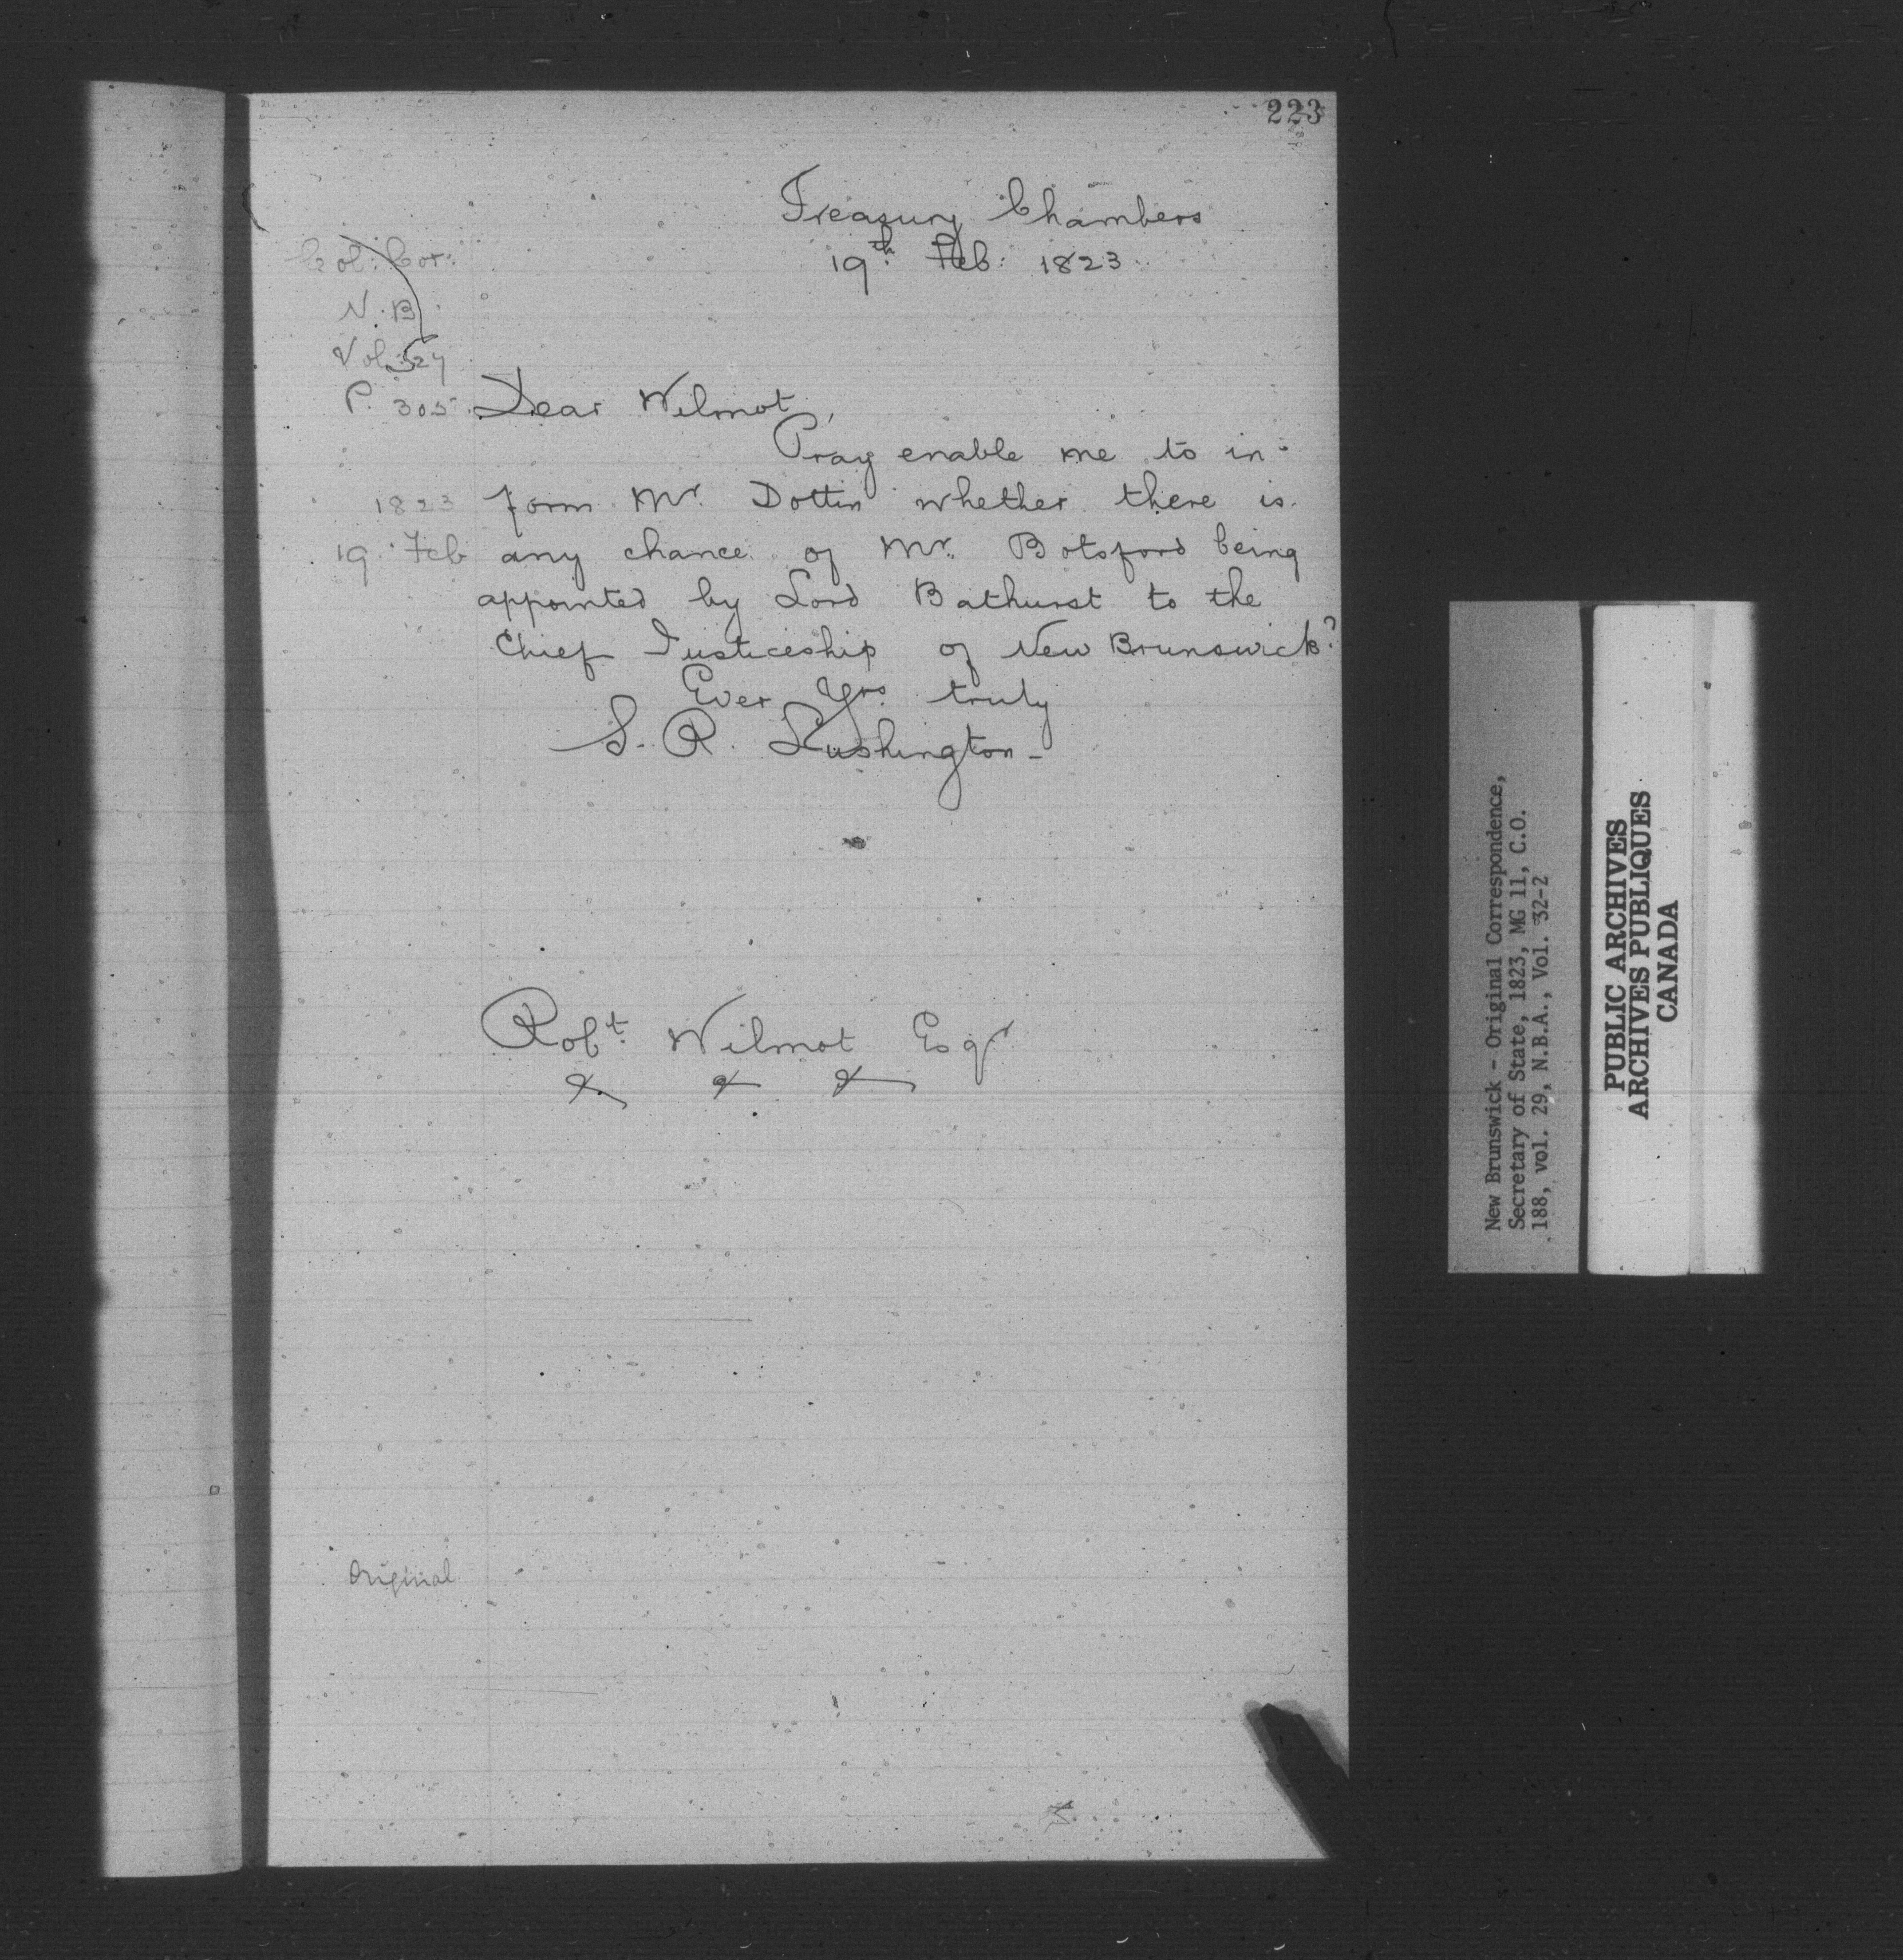 223
Treasury Chambers
19th. Feb. 1823.
Col. Cor.
N. B.
P. 305.
Dear Wilmot,
Pray enable me to in-
1823
form Mr. Dottin whether there is
19. Feb
any chance of Mr. Botsford being
appointed by Lord Bathurst to the
Chief Justiceship of New Brunswick?
Ever Yrs. truly
S. R. Lushington -
Robt. Wilmot Esqr
& & &
Original
New Brunswick - Original Correspondence,
Secretary of State, 1823, MG 11, C.O.
188, vol. 29, N.B.A., Vol. 32-2
PUBLIC ARCHIVES
ARCHIVES PUBLIQUES
CANADA